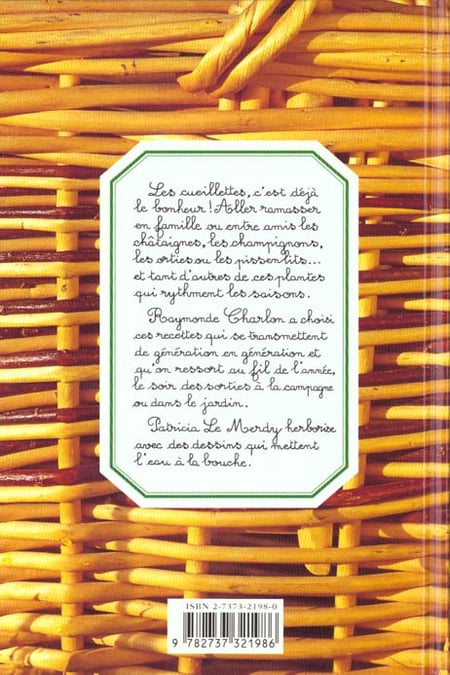 Les cueillettes, c'est déjà
le bonheur! Aller ramasser
en famille ou entre amis les
châtaignes, les champignons,
les orties ou les pissenlits...
et tant d'autres de ces plantes
qui rythment les saisons.
Raymonde Charlon a choisi
ces recettes qui se transmettent
de génération en génération et
qu'on ressort au fil de l'année,
le soir des sorties à la campagne
ou dans le jardin.
Patricia Le Merdy herborise
avec des dessins qui mettent
l'eau à la bouche.
ISBN 2-7373-2198-0
9 782737 321986